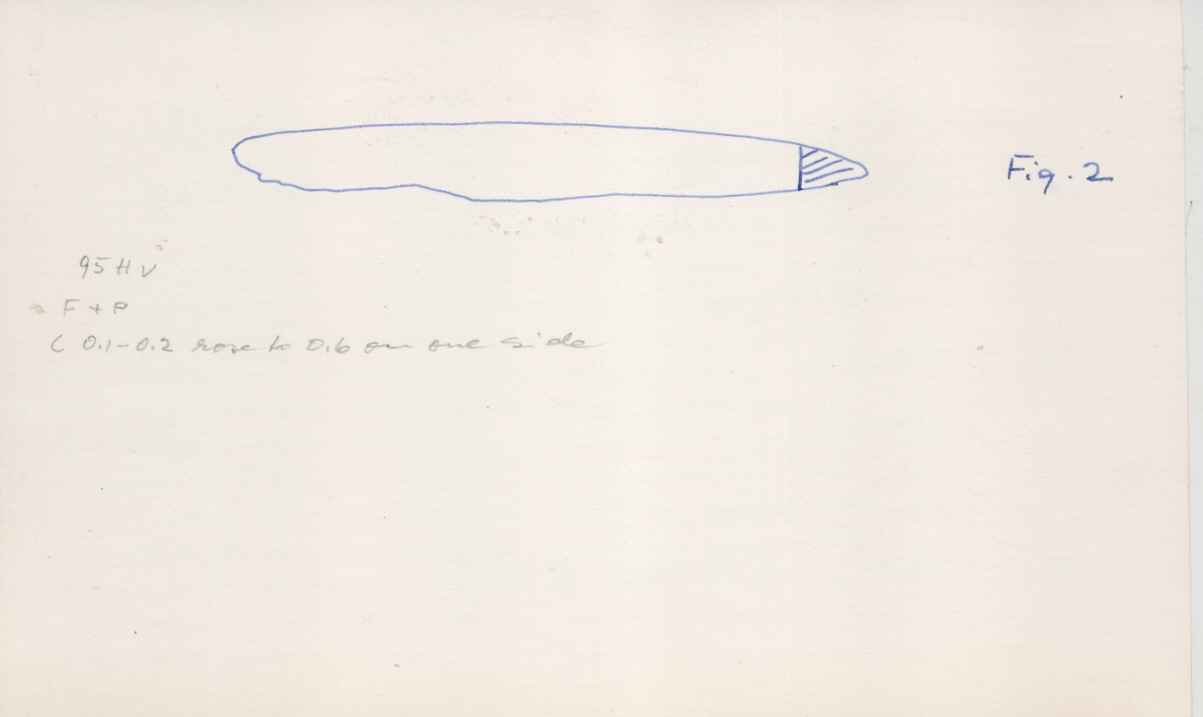 Fig. 2
95 HV
F + P
C 0.1-0.2 rose to 0.6 on one side